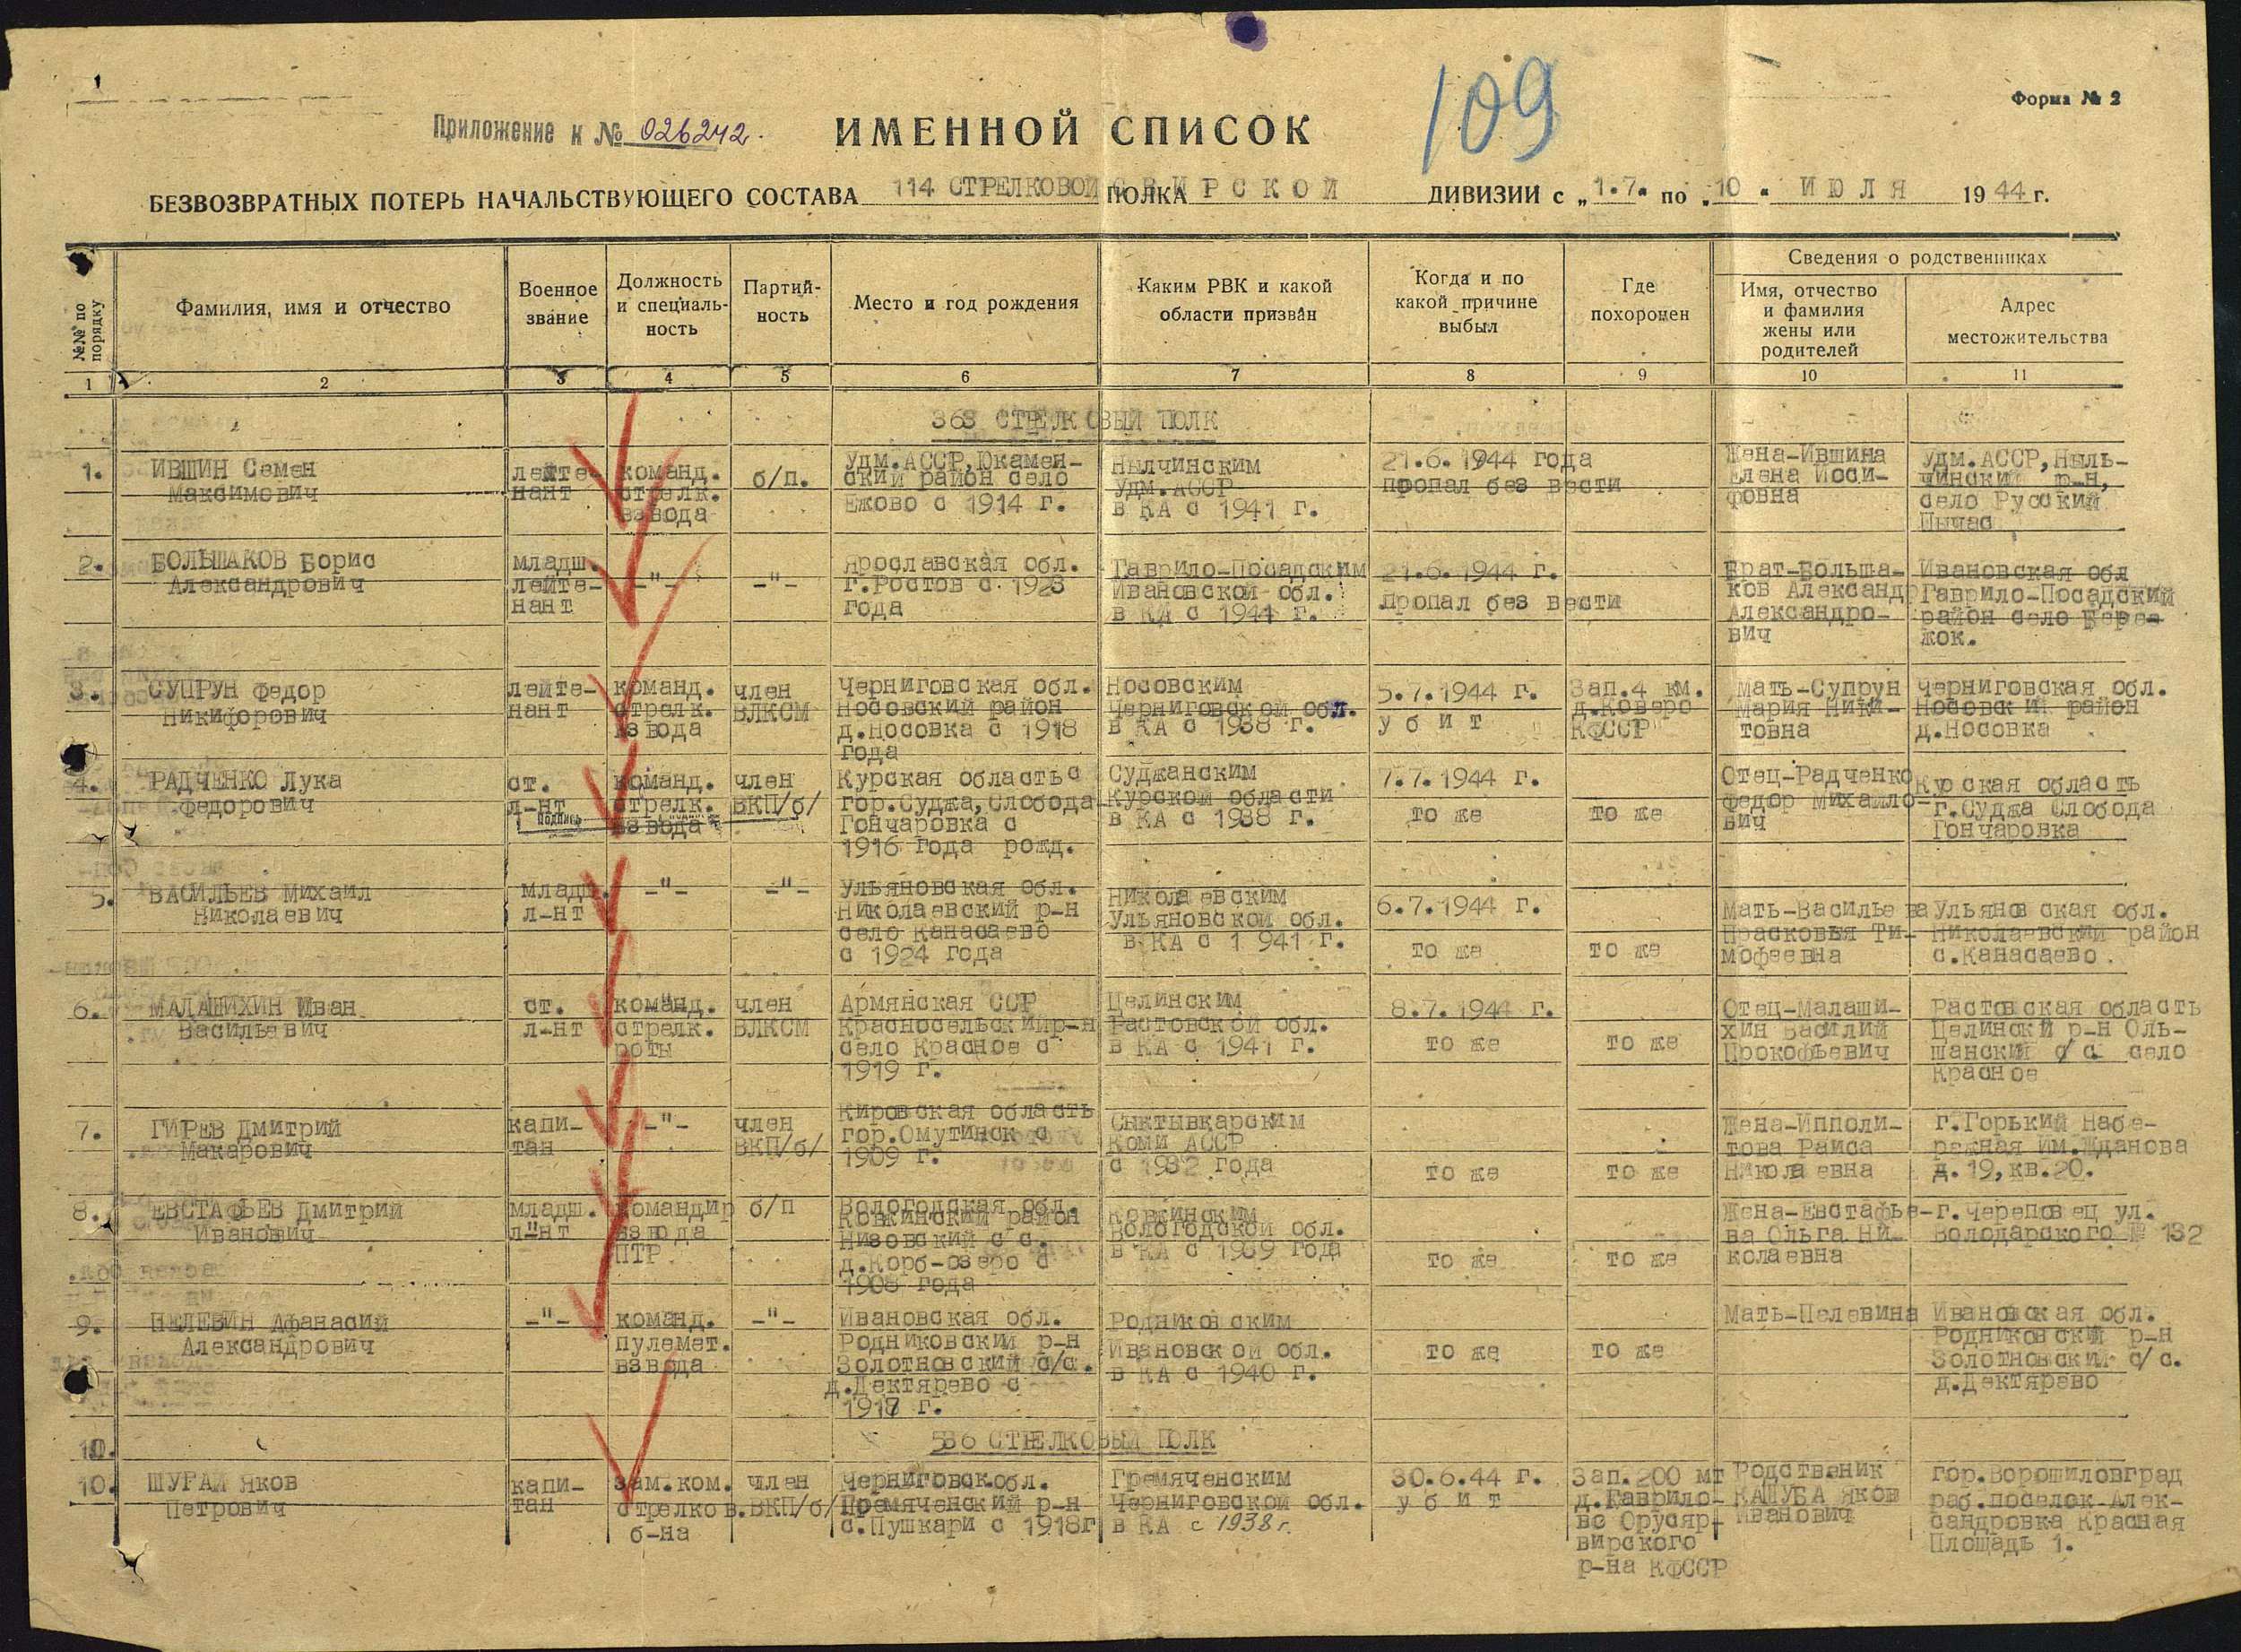 1
Форма № 2
Приложение к № 026242.
ИМЕННОЙ СПИСОК
109
БЕЗВОЗВРАТНЫХ ПОТЕРЬ НАЧАЛЬСТВУЮЩЕГО СОСТАВА 114 СТРЕЛКОВОЙ СВИРСКОЙ ПОЛКА ДИВИЗИИ с „1.7." по „10" ИЮЛЯ 1944 г.
№№ по порядку
Фамилия, имя и отчество
Военное звание
Должность и специаль-ность
Партий-ность
Место и год рождения
Каким РВК и какой области призван
Когда и по какой причине выбыл
Где похоронен
Сведения о родственниках
Имя, отчество и фамилия жены или родителей
Адрес местожительства
1 2 3 4 5 6 7 8 9 10 11
363 СТРЕЛКОВЫЙ ПОЛК
1. ИВШИН Семен Максимович
лейте-нант
команд. стрелк. взвода
б/п.
Удм.АССР,Юкамен-ский район село Ежово с 1914 г.
Нылчинским Удм.АССР в КА с 1941 г.
21.6.1944 года пропал без вести
Жена-Ившина Елена Иоси-фовна
Удм.АССР,Ныль-чинский р-н, село Русский Пычас
2. БОЛЬШАКОВ Борис Александрович
младш. лейте-нант
-"-
-"-
Ярославская обл. г.Ростов с 1923 года
Гаврило-Посадским Ивановской обл. в КА с 1941 г.
21.6.1944 г. Пропал без вести
Брат-Больша-ков Александр Александро-вич
Ивановская обл Гаврило-Посадский район село Бере-жок.
3. СУПРУН Федор Никифорович
лейте-нант
команд. стрелк. взвода
член ВЛКСМ
Черниговская обл. Носовский район д.Носовка с 1918 года
Носовским Черниговской обл. в КА с 1938 г.
5.7.1944 г. убит
Зап.4 км. д.Коверо КФССР
Мать-Супрун Мария Ники-товна
Черниговская обл. Носовский район д.Носовка
4. РАДЧЕНКО Лука Федорович
ст. л-нт
подпись
команд. стрелк. взвода
член ВКП/б/
Курская область с гор.Суджа,Слобода Гончаровка с 1916 года рожд.
Суджанским Курской области в КА с 1938 г.
7.7.1944 г. то же
то же
Отец-Радченко Федор Михайло-вич
Курская область г.Суджа Слобода Гончаровка
5. ВАСИЛЬЕВ Михаил Николаевич
младш. л-нт
-"-
-"-
Ульяновская обл. Николаевский р-н село Канасаево с 1924 года
Николаевским Ульяновской обл. в КА с 1941 г.
6.7.1944 г. то же
то же
Мать-Васильева Прасковья Ти-мофеевна
Ульяновская обл. Николаевский район с.Канасаево.
6. МАЛАШИХИН Иван Васильевич
ст. л-нт
команд. стрелк. роты
член ВЛКСМ
Армянская ССР Красносельский р-н село Красное с 1919 г.
Целинским Растовской обл. в КА с 1941 г.
8.7.1944 г. то же
то же
Отец-Малаши-хин Василий Прокофьевич
Растовская область Целинский р-н Оль-шанский с/с село Красное
7. ГИРЕВ Дмитрий Макарович
капи-тан
-"-
член ВКП/б/
Кировская область гор.Омутинск с 1909 г.
Сыктывкарским Коми АССР с 1932 года
то же
то же
Жена-Ипполи-това Раиса Николаевна
г.Горький Набе-режная им.Жданова д.19,кв.20.
8. ЕВСТАФЬЕВ Дмитрий Иванович
младш. л-нт
командир взвода ПТР
б/п
Вологодская обл. Ковжинский район Низовский с/с. д.Корб-озеро с 1908 года
Ковжинским Вологодской обл. в КА с 1939 года
то же
то же
Жена-Евстафье-ва Ольга Ни-колаевна
г.Череповец ул. Володарского № 132
9. ПЕЛЕВИН Афанасий Александрович
-"-
команд. пулемет. взвода
-"-
Ивановская обл. Родниковский р-н Золотновский с/с. д.Дектярево с 1917 г.
Родниковским Ивановской обл. в КА с 1940 г.
то же
то же
Мать-Пелевина
Ивановская обл. Родниковский р-н Золотновский с/с. д.Дектярево
10.
536 СТРЕЛКОВЫЙ ПОЛК
10. ШУРАЙ Яков Петрович
капи-тан
зам.ком. стрелков. б-на
член ВКП/б/
Черниговск.обл. Гремяченский р-н с.Пушкари с 1918г
Гремяченским Черниговской обл. в КА с 1938 г.
30.6.44 г. убит
Зап.200 мт д.Гаврило-во Орусяр-вирского р-на КФССР
Родственик КАШУБА Яков Иванович
гор.Ворошиловград раб.поселок-Алек-сандровка Красная Площадь 1.